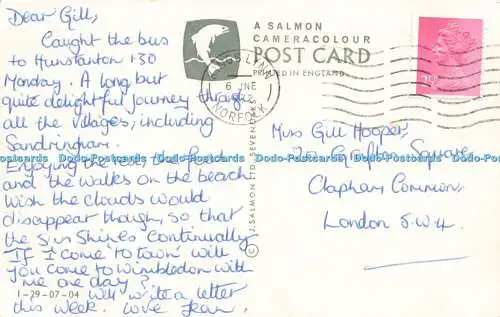 Dear Gill,
Caught the bus
to Hunstanton 1.30
Monday. A long but
quite delightful journey through
all the villages, including
Sandringham.
Enjoying the rest, the food
and the walks on the beach
Wish the clouds would
disappear though, so that
the Sun Shines Continually
If I come to town will
you come to Wimbledon with
me one day?
1-29-07-04 Will write a letter
this week. Love Jean.
A SALMON
CAMERACOLOUR
POST CARD
PRINTED IN ENGLAND
6 JNE
NORFOLK
© J. SALMON LTD SEVENOAKS
Miss Gill Hooper,
Grafton Square,
Clapham Common,
London S.W.4.
Dodo-Postcards Dodo-Postcards Dodo-Postcards Dodo-Postcards Dodo-Postcards Dodo-Postcards